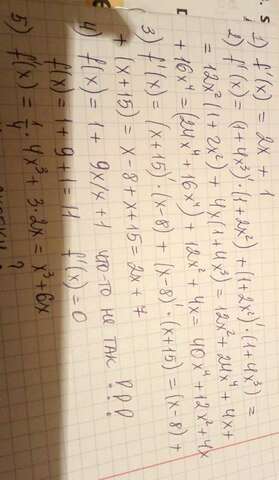 1) f'(x) = 2x + 1
2) f'(x) = (1+4x³)'·(1+2x²) + (1+2x²)'(1+4x³) =
= 12x²(1+2x²) + 4x(1+4x³) = 12x² + 24x⁴ + 4x +
+ 16x⁴ = (24x⁴ + 16x⁴) + 12x² + 4x = 40x⁴ + 12x² + 4x
3) f'(x) = (x+15)'·(x-8) + (x-8)'·(x+15) = (x-8) +
+ (x+15) = x-8+x+15 = 2x+7
4) f(x) = 1 + 9x/x + 1 что-то не так ???
f(x) = 1 + 9 + 1 = 11 f'(x) = 0
5) f'(x) = 1/4 · 4x³ + 3·2x = x³ + 6x